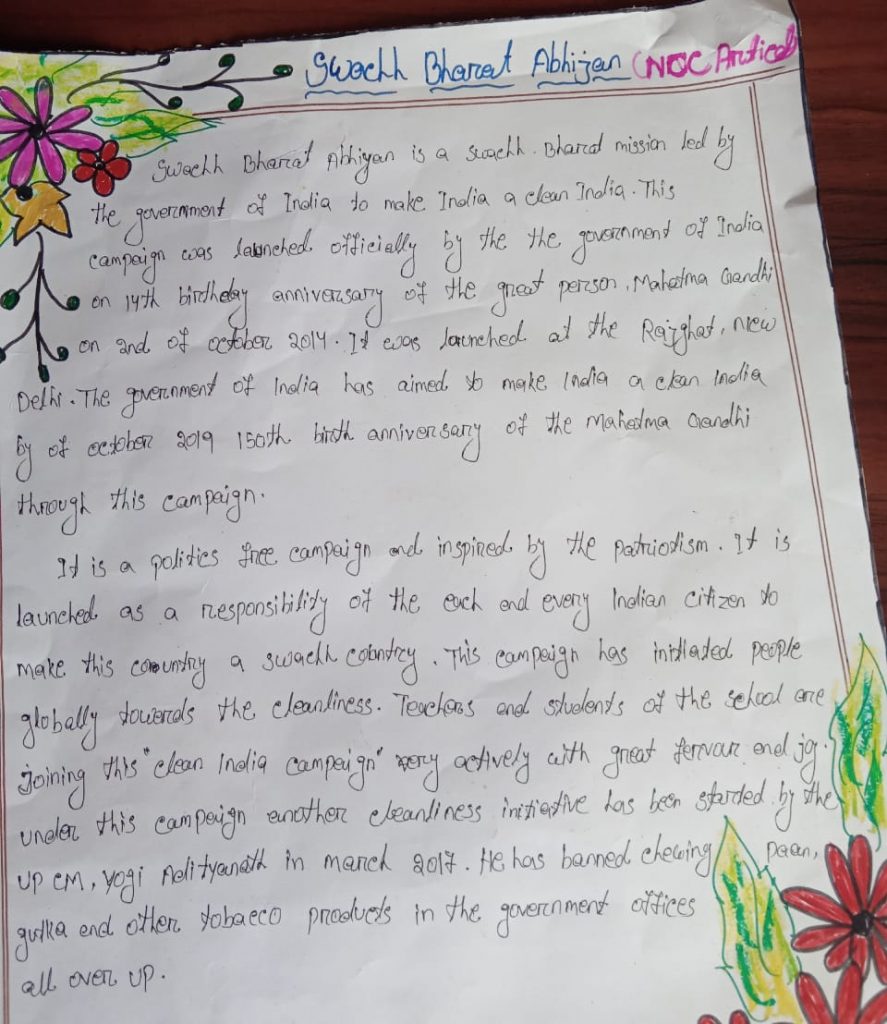 Swachh Bharat Abhijan (NOC Artical)
Swachh Bharat Abhiyan is a swachh. Bharat mission led by
the government of India to make India a clean India. This
campaign was launched officially by the the government of India
on 14th birthday anniversary of the great person, Mahatma Gandhi
on 2nd of october 2014. It was launched at the Rajghat, new
Delhi. The government of India has aimed to make India a clean India
by of october 2019 150th birth anniversary of the Mahatma Gandhi
through this campaign.
It is a politics free campaign and inspired by the patriotism. It is
launched as a responsibility of the each and every Indian citizen to
make this country a swachh country. This campaign has initiated people
globally towards the cleanliness. Teachers and students of the school are
joining this "clean India campaign" very actively with great fervour and joy.
under this campaign another cleanliness initiative has been started by the
UP CM, Yogi Adityanath in march 2017. He has banned chewing paan,
gutka and other tobacco products in the government offices
all over UP.